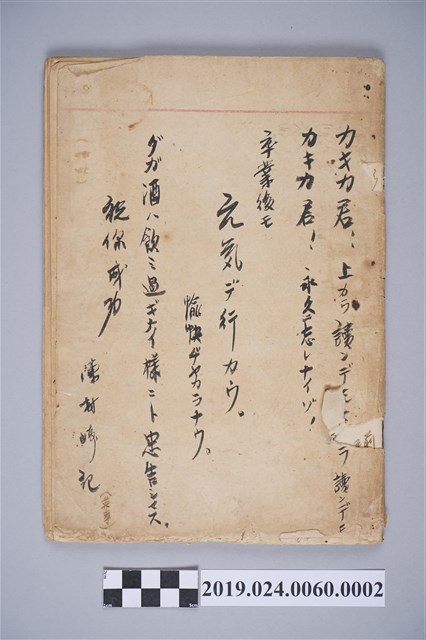 カキカ君！ 上カラ讀ンデモ ラ讀ンデモ
カキカ君！ 永久忘レナイゾ！
卒業後モ
元気デ行カウ。
愉快デヤラナウ。
ダガ酒ハ飲ミ過ギナイ様ニト忠告シマス。
祝你成功
陳 記
2019.024.0060.0002